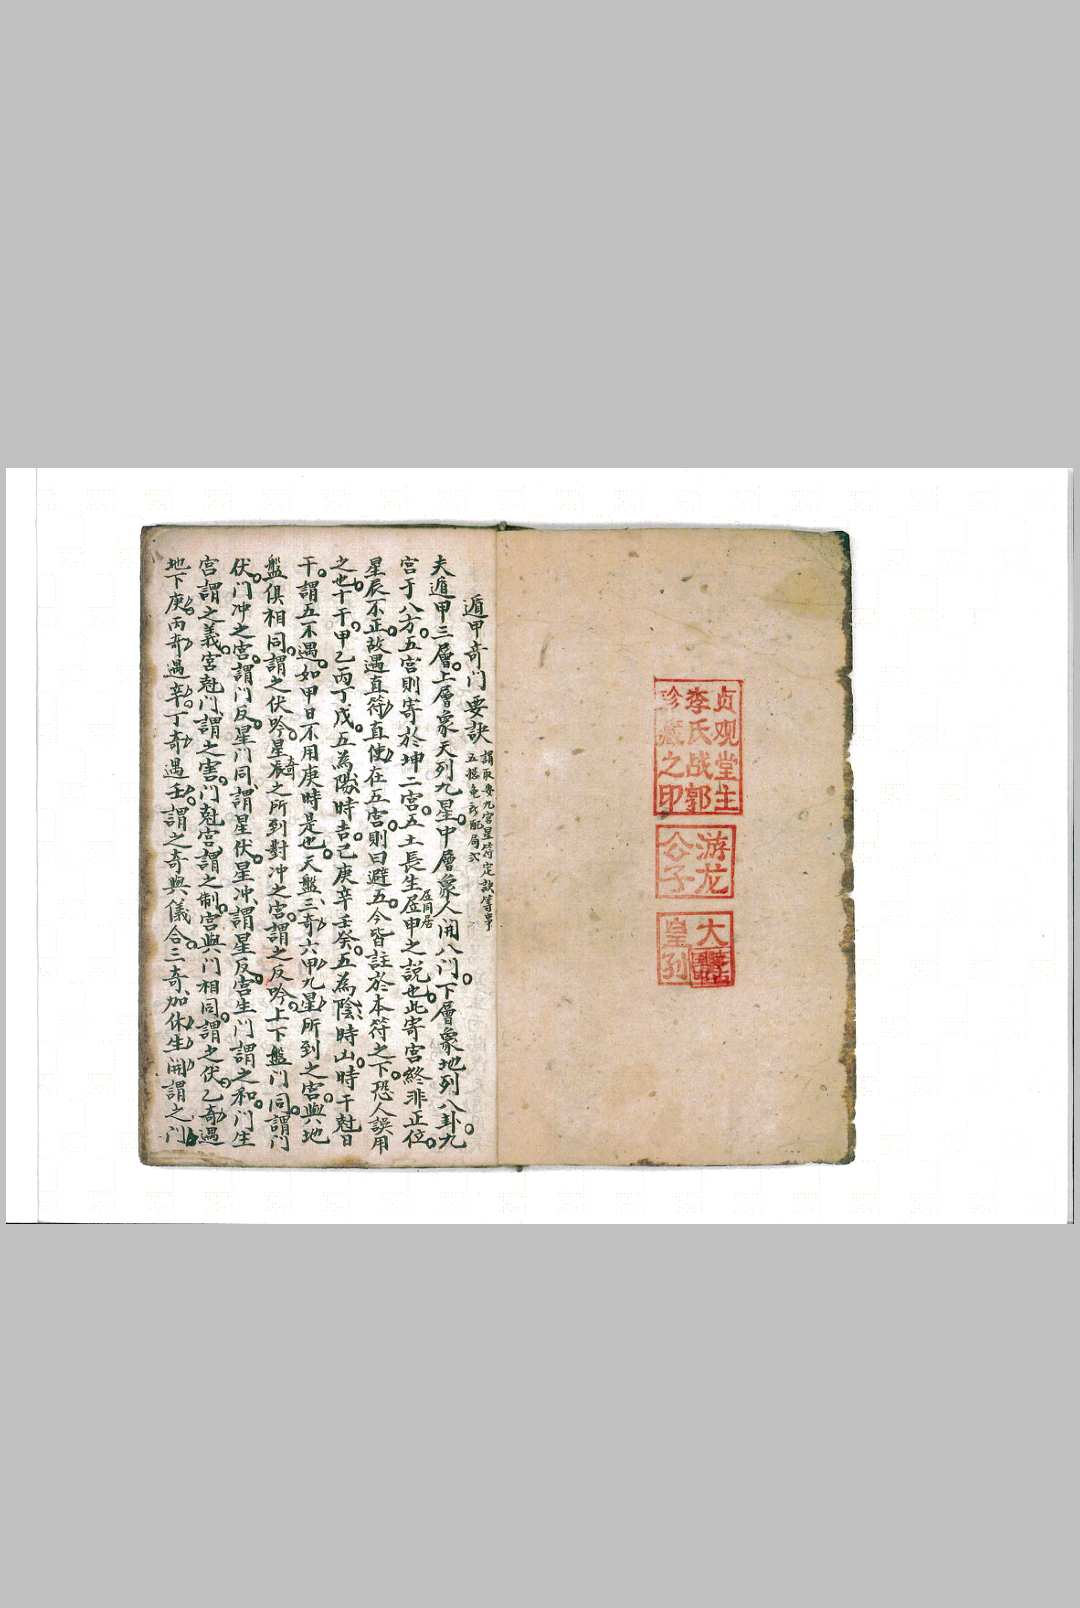 贞观堂主
李氏战郭
珍藏之印
游龙
公子
大
皇列
遁甲奇门要訣
夫遁甲三層上層象天列九星中層象人開八门下層象地列八卦九
宫于八方五宫則寄於坤二宫五土長生居申之説也此寄宫終非正位
居同居
星辰不正故遇直符直使在五宫則曰避五今皆註於本符之下恐人誤用
之也十干甲乙丙丁戊五為陽時吉己庚辛壬癸五為陰時山時干尅日
干謂五不遇如甲日不用庚時是也天盤三奇六甲九星所到之宫與地
盤俱相同謂之伏吟星辰之所到對冲之宫謂之反吟上下盤门同謂门
奇
伏门冲之宫謂门反星门同謂星伏星冲謂星反宫生门謂之和门生
宫謂之義宫尅门謂之害门尅宫謂之制宫與门相同謂之伏乙奇遇
地下庚丙奇遇辛丁奇遇壬謂之奇與儀合三奇加休生開謂之门